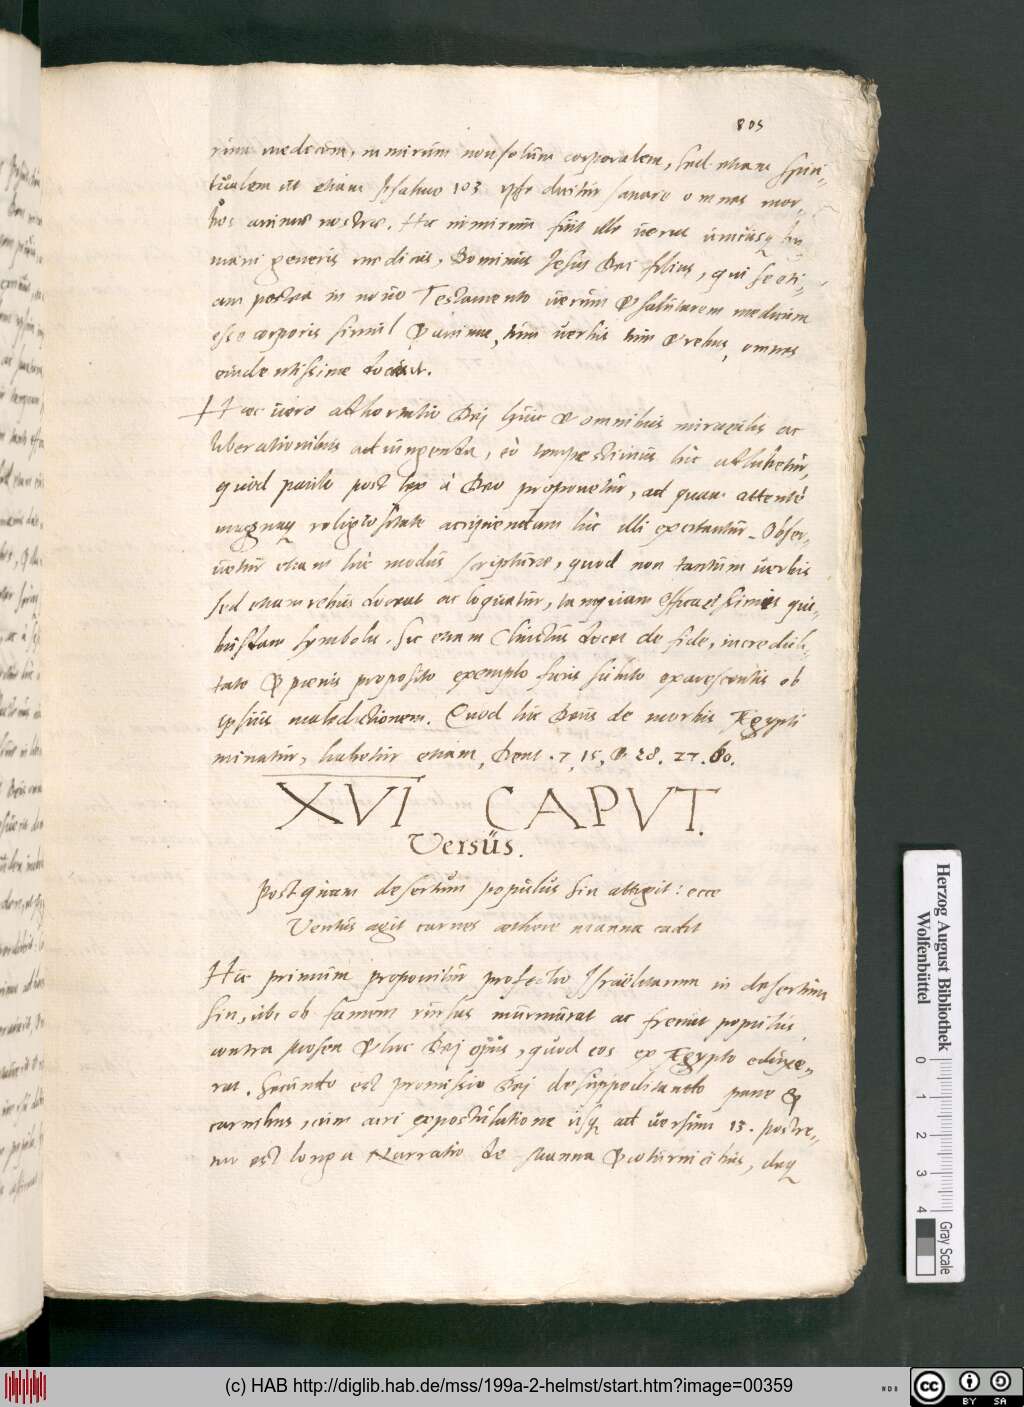 805
rum medicum, nimirum non solum corporalem, sed etiam spiri-
tualem ut etiam Psalmo 103 ipse dicitur sanare omnes mor-
bos animae nostrae. Hic nimirum fuit ille verus unicusq hu
mani generis medicus, Dominus Jesus Dei filius, qui se eti-
am postea in novo Testamento verum & salutarem medicum
esse corporis simul & animae, tum verbis tum & rebus, omnes
evidentissime docuit.
Haec vero adhortatio Dei huic & omnibus miraculis ac
liberationibus adiungenda, eò tempestivius hic adhibetur,
quod paulo post lex à Deo proponetur, ad quam attentè
magnaq religiositate accipiendam hic illi excitantur. Obser-
vetur etiam hic modus scripturae, quod non tantum verbis
sed etiam rebus doceat ac loquatur, tanquam efficacissimis qui-
busdam symbolis. Sic etiam Christus docet de fide, incredul-
tate & poenis proposito exemplo ficus subito exarescentis ob
ipsius maledictionem. Quod hic Deus de morbis Aegypti
minatur, habetur etiam, Deut. 7, 15, & 28. 27. 60.
XVI CAPVT.
Versus.
Postquam desertum populus Sin attigit: ecce
Ventus agit carnes aethere manna cadit
Hic primum proponitur profectio Israëlitarum in desertum
Sin, ubi ob famem rursus murmurat ac fremit populus
contra Mosen & hoc Dei opus, quod eos ex Aegypto eduxe-
rat. Secundo est promissio Dei de suppeditando pane &
carnibus, cum acri expostulatione usq ad versum 13. Postre-
mo est longa Narratio de Manna & coturnicibus, deq
Herzog August Bibliothek
Wolfenbüttel
0 1 2 3 4
Gray Scale
(c) HAB http://diglib.hab.de/mss/199a-2-helmst/start.htm?image=00359
cc BY SA